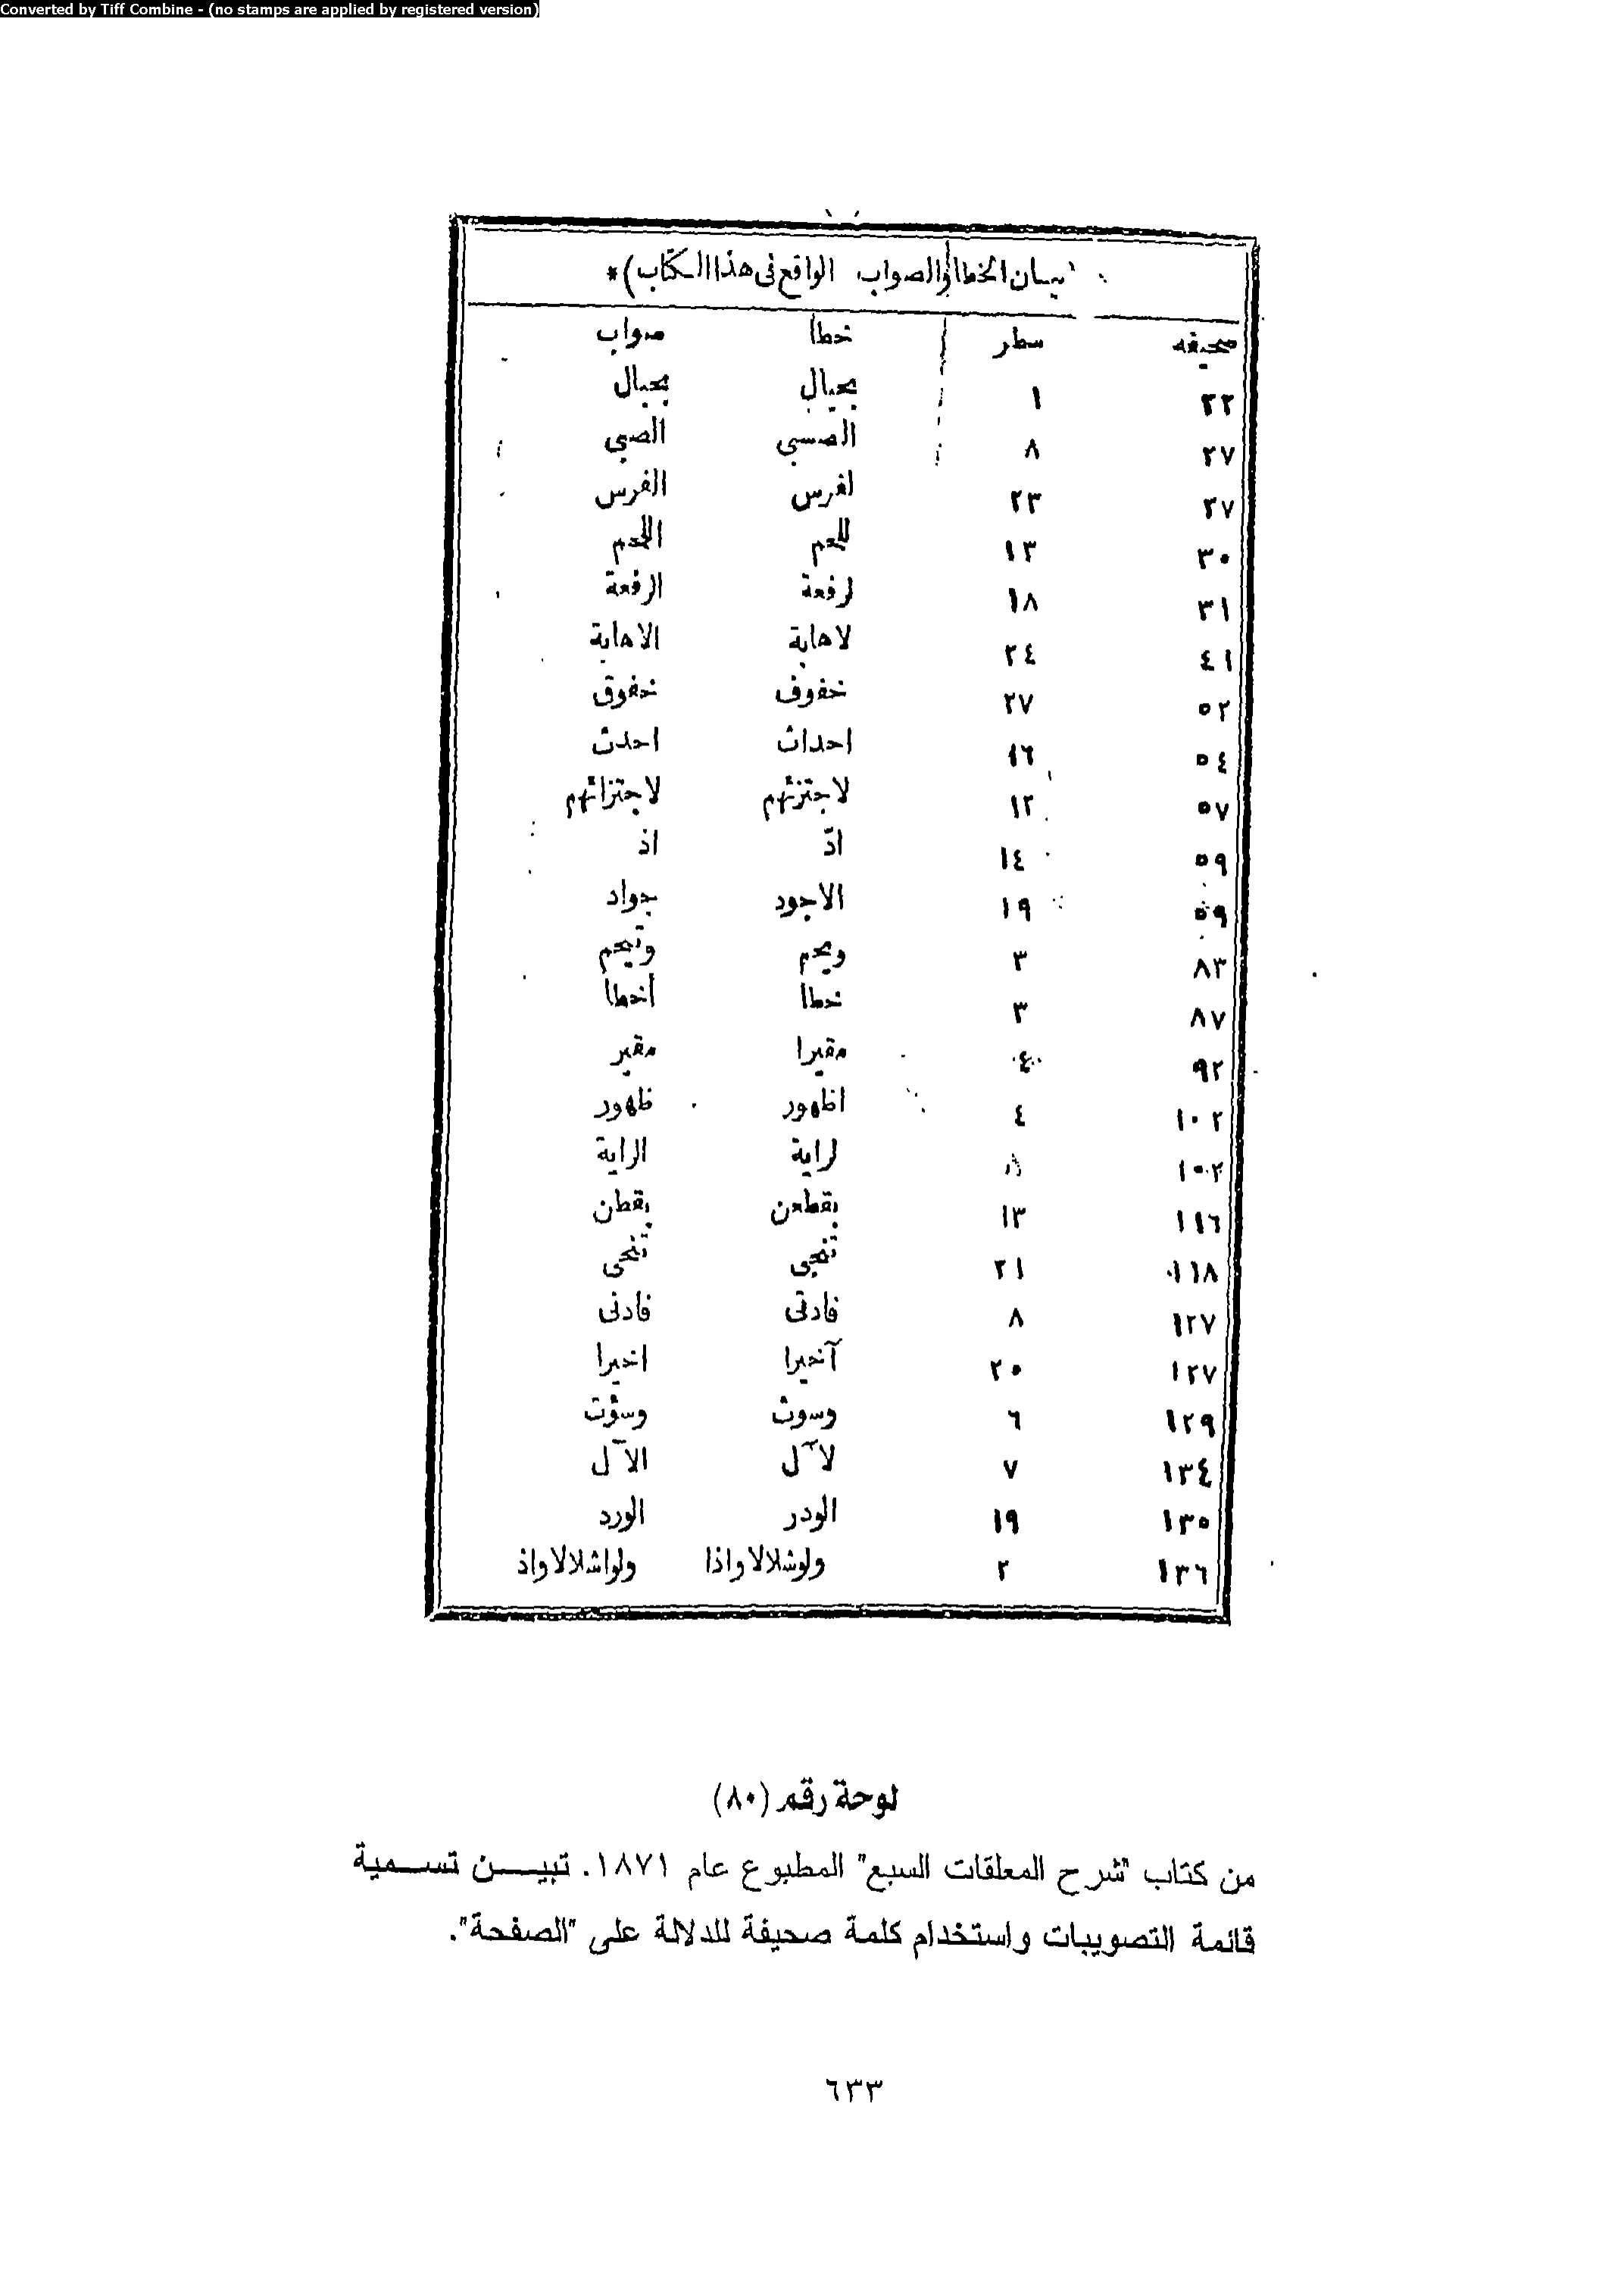 Converted by Tiff Combine - (no stamps are applied by registered version)
بيان الخطا والصواب الواقع فى هذا الكتاب)*
صحيفه سطر خطا صواب
٢٢ ١ بجيال بجبال
٢٧ ٨ الصسبي الصبي
٢٧ ٢٣ لفرس الفرس
٣٠ ١٣ للجم اللجم
٣١ ١٨ لرفعة الرفعة
٤١ ٢٤ لاهابة الاهابة
٥٢ ٢٧ خفوف خفوق
٥٤ ١٦ احداث احدث
٥٧ ١٢ لاجتزئهم لاجتزائهم
٥٩ ١٤ اذ
٥٩ ١٩ الاجود جواد
٨٣ ٣
٨٧ ٣ خطا أخطا
٩٢ ٤ مقيرا مقير
١٠٢ ٤ اظهور ظهور
١٠٢ لراية الراية
١١٦ ١٣ بقطعن بقطن
١١٨ ٢١ تنجى تنحى
١٢٧ ٨ فادتى فادنى
١٢٧ ٢٥ آخيرا اخيرا
١٢٩ ٦ وسوث وسؤت
١٣٤ ٧ لآل الآل
١٣٥ ١٩ الودر الورد
١٣٦ ٢ ولوشلالا واذا ولواشلالا واذ
لوحة رقم (٨٠)
من كتاب "شرح المعلقات السبع" المطبوع عام ١٨٧١. تبيـــن تســمية
قائمة التصويبات واستخدام كلمة صحيفة للدلالة على "الصفحة".
٦٣٣